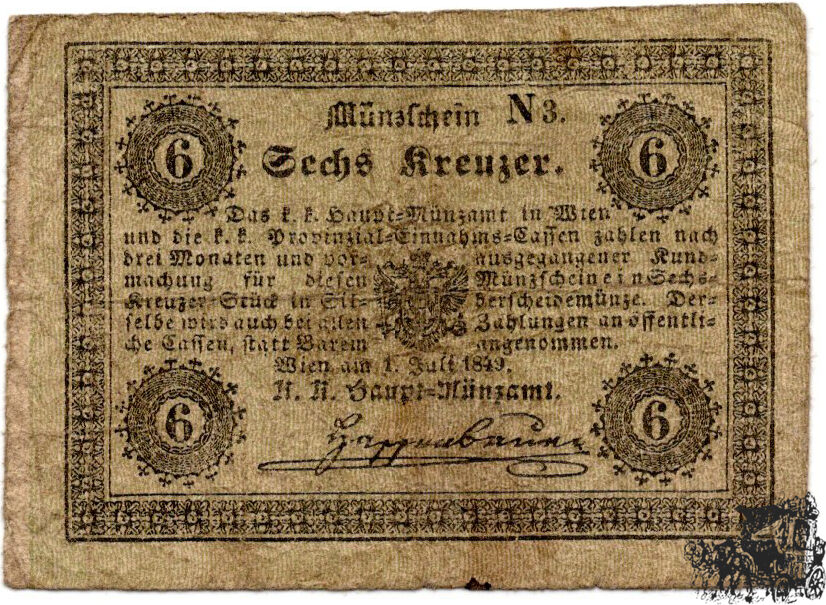 Münzschein N 3.
6 Sechs Kreuzer. 6
Das k. k. Haupt=Münzamt in Wien
und die k. k. Provinzial=Einnahms=Cassen zahlen nach
drei Monaten und vor= ausgegangener Kund=
machung für diesen Münzschein ein Sechs=
Kreuzer=Stück in Sil= berscheidemünze. Der=
selbe wird auch bei allen Zahlungen an öffentli=
che Cassen, statt Barem angenommen.
Wien am 1. Juli 1849.
K. K. Haupt=Münzamt.
6 6